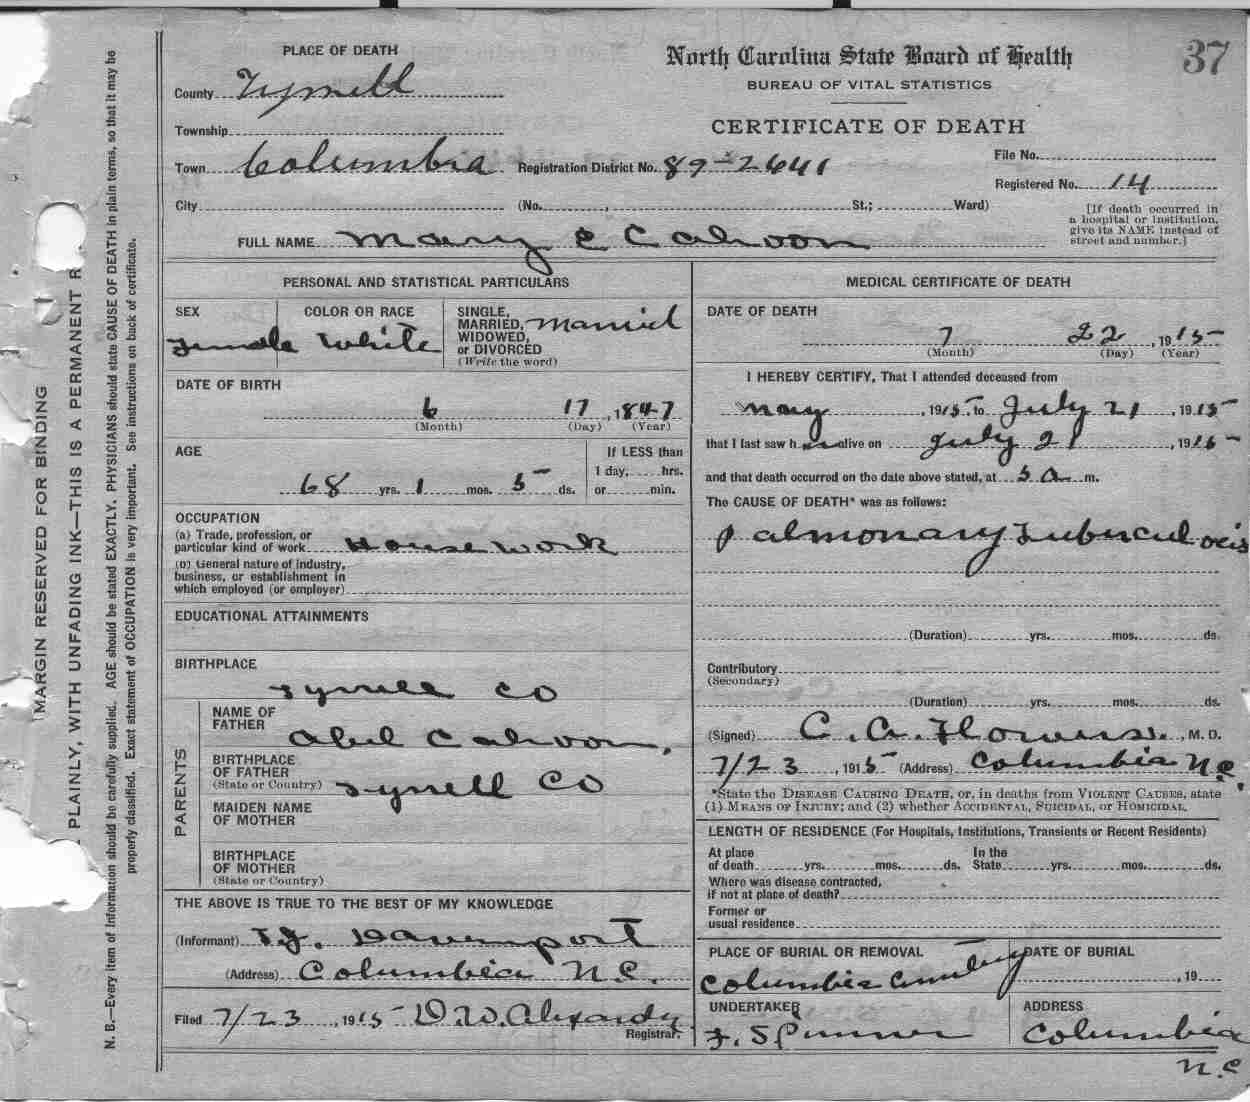 37
North Carolina State Board of Health
BUREAU OF VITAL STATISTICS
CERTIFICATE OF DEATH
PLACE OF DEATH
County Tyrrell
Township
Town Columbia Registration District No. 89-2641
File No.
Registered No. 14
City (No. , St.; Ward)
[If death occurred in
a hospital or institution,
give its NAME instead of
street and number.]
FULL NAME Mary E Cahoon
PERSONAL AND STATISTICAL PARTICULARS
SEX
Female
COLOR OR RACE
White
SINGLE,
MARRIED,
WIDOWED,
or DIVORCED
(Write the word)
Married
DATE OF BIRTH
6 17, 1847
(Month) (Day) (Year)
AGE
68 yrs. 1 mos. 5 ds.
If LESS than
1 day, hrs.
or min.
OCCUPATION
(a) Trade, profession, or
particular kind of work House work
(b) General nature of industry,
business, or establishment in
which employed (or employer)
EDUCATIONAL ATTAINMENTS
BIRTHPLACE
Tyrrell Co
PARENTS
NAME OF
FATHER
Abel Cahoon.
BIRTHPLACE
OF FATHER
(State or Country)
Tyrrell Co
MAIDEN NAME
OF MOTHER
BIRTHPLACE
OF MOTHER
(State or Country)
THE ABOVE IS TRUE TO THE BEST OF MY KNOWLEDGE
(Informant) Davenport
(Address) Columbia N.C.
Filed 7/23, 1915 D.W. Alexander
Registrar.
MEDICAL CERTIFICATE OF DEATH
DATE OF DEATH
7 22, 1915
(Month) (Day) (Year)
I HEREBY CERTIFY, That I attended deceased from
May, 1915, to July 21, 1915
that I last saw h er alive on July 21, 1915
and that death occurred on the date above stated, at 5 a m.
The CAUSE OF DEATH* was as follows:
Palmonary Tuberculocis
(Duration) yrs. mos. ds.
Contributory
(Secondary)
(Duration) yrs. mos. ds.
(Signed) C. A. Flowers., M. D.
7/23, 1915 (Address) Columbia N.C.
*State the DISEASE CAUSING DEATH, or, in deaths from VIOLENT CAUSES, state
(1) MEANS OF INJURY; and (2) whether ACCIDENTAL, SUICIDAL, or HOMICIDAL.
LENGTH OF RESIDENCE (For Hospitals, Institutions, Transients or Recent Residents)
At place
of death yrs. mos. ds.
In the
State yrs. mos. ds.
Where was disease contracted,
if not at place of death?
Former or
usual residence
PLACE OF BURIAL OR REMOVAL
Columbia Cemetery
DATE OF BURIAL
, 19
UNDERTAKER
ADDRESS
Columbia
N.C
MARGIN RESERVED FOR BINDING
PLAINLY, WITH UNFADING INK—THIS IS A PERMANENT R
N. B.—Every item of information should be carefully supplied. AGE should be stated EXACTLY. PHYSICIANS should state CAUSE OF DEATH in plain terms, so that it may be
properly classified. Exact statement of OCCUPATION is very important. See instructions on back of certificate.